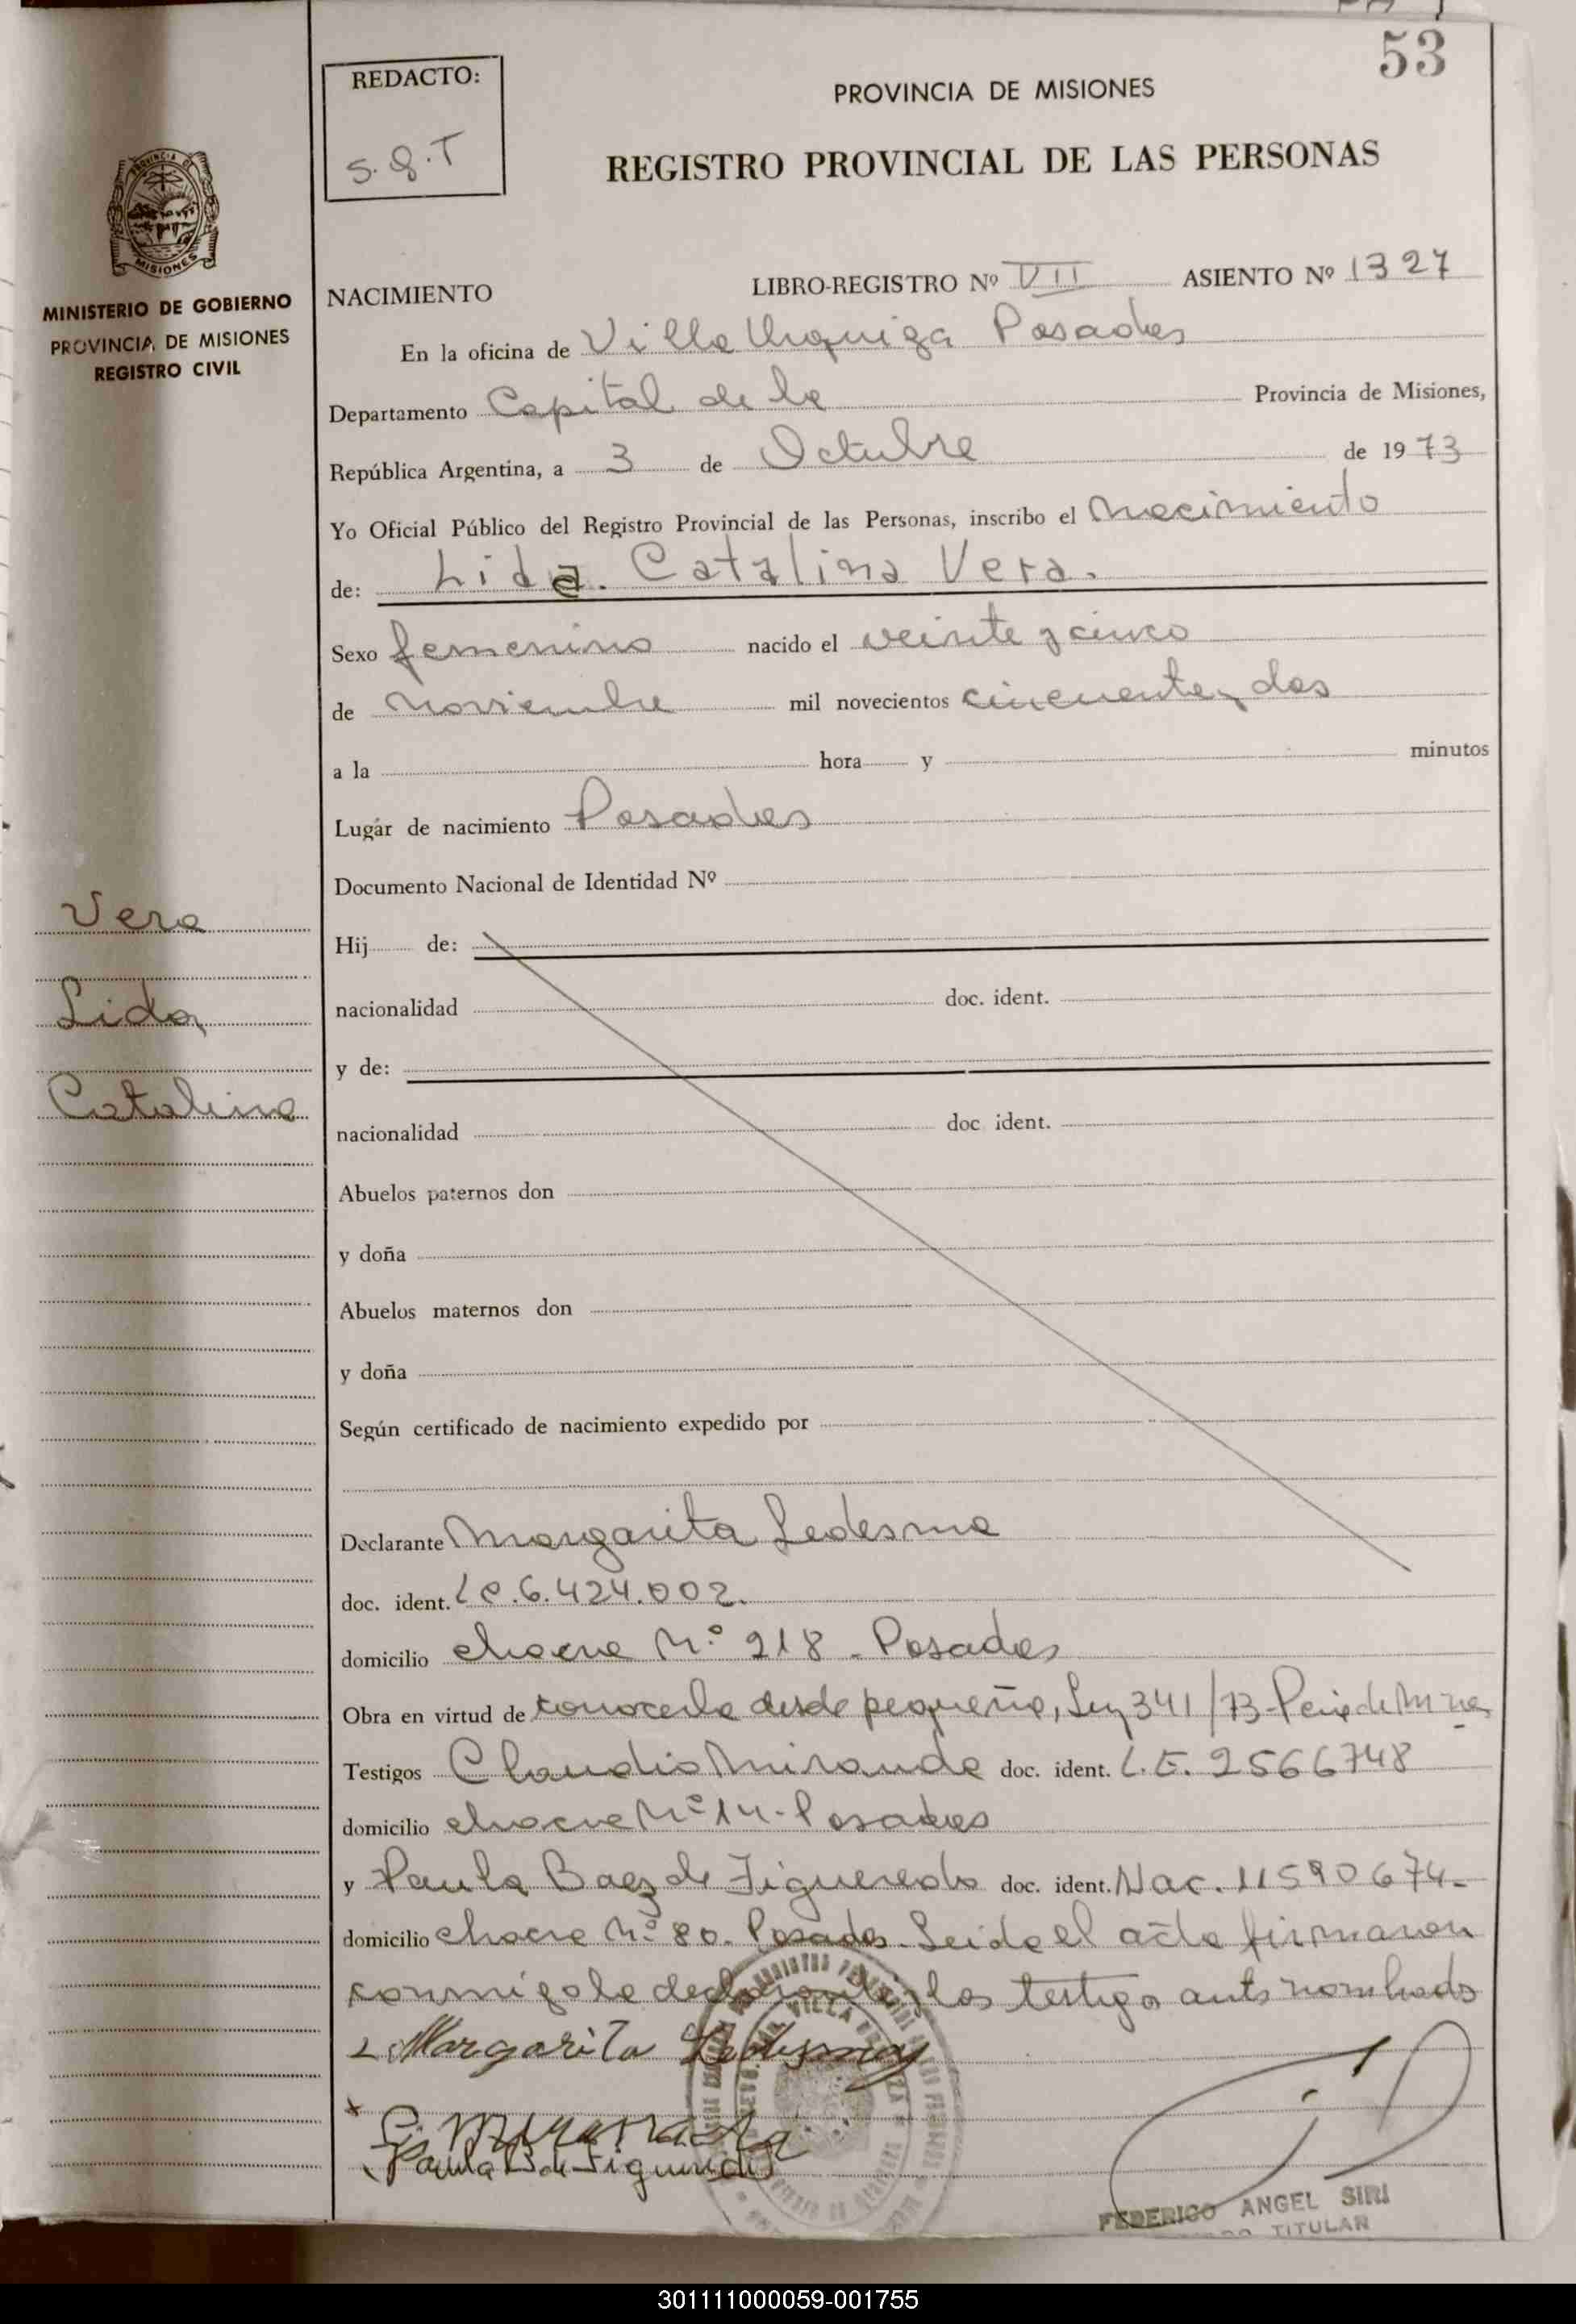 53
REDACTO:
S.G.T
PROVINCIA DE MISIONES
REGISTRO PROVINCIAL DE LAS PERSONAS
PROVINCIA DE
MISIONES
MINISTERIO DE GOBIERNO
PROVINCIA DE MISIONES
REGISTRO CIVIL
NACIMIENTO LIBRO-REGISTRO Nº VII ASIENTO Nº 1327
En la oficina de Villa Urquiza Posadas
Departamento Capital de la Provincia de Misiones,
República Argentina, a 3 de Octubre de 1973
Yo Oficial Público del Registro Provincial de las Personas, inscribo el nacimiento
de: Lida. Catalina Vera.
Sexo femenino nacido el veinte y cinco
de noviembre mil novecientos cincuenta y dos
a la hora y minutos
Lugar de nacimiento Posadas
Documento Nacional de Identidad Nº
Vera
Lida
Catalina
Hij de:
nacionalidad doc. ident.
y de:
nacionalidad doc ident.
Abuelos paternos don
y doña
Abuelos maternos don
y doña
Según certificado de nacimiento expedido por
Declarante Margarita Ledesma
doc. ident. LC.6.424.002.
domicilio chacra Nº 218 - Posadas
Obra en virtud de conocerla desde pequeña, Ley 341/73-
Testigos Claudio Miranda doc. ident. L.E. 2566748
domicilio chacra Nº 14 - Posadas
y Paula Baez de Figueredo doc. ident. Nac. 11590674-
domicilio chacra Nº 80. Posadas. Leida el acta firmaron
conmigo la declarante y los testigos antes nombrado
Margarita Ledesma
C. Miranda
Paula B de Figueredo
FEDERICO ANGEL SIRI
TITULAR
301111000059-001755